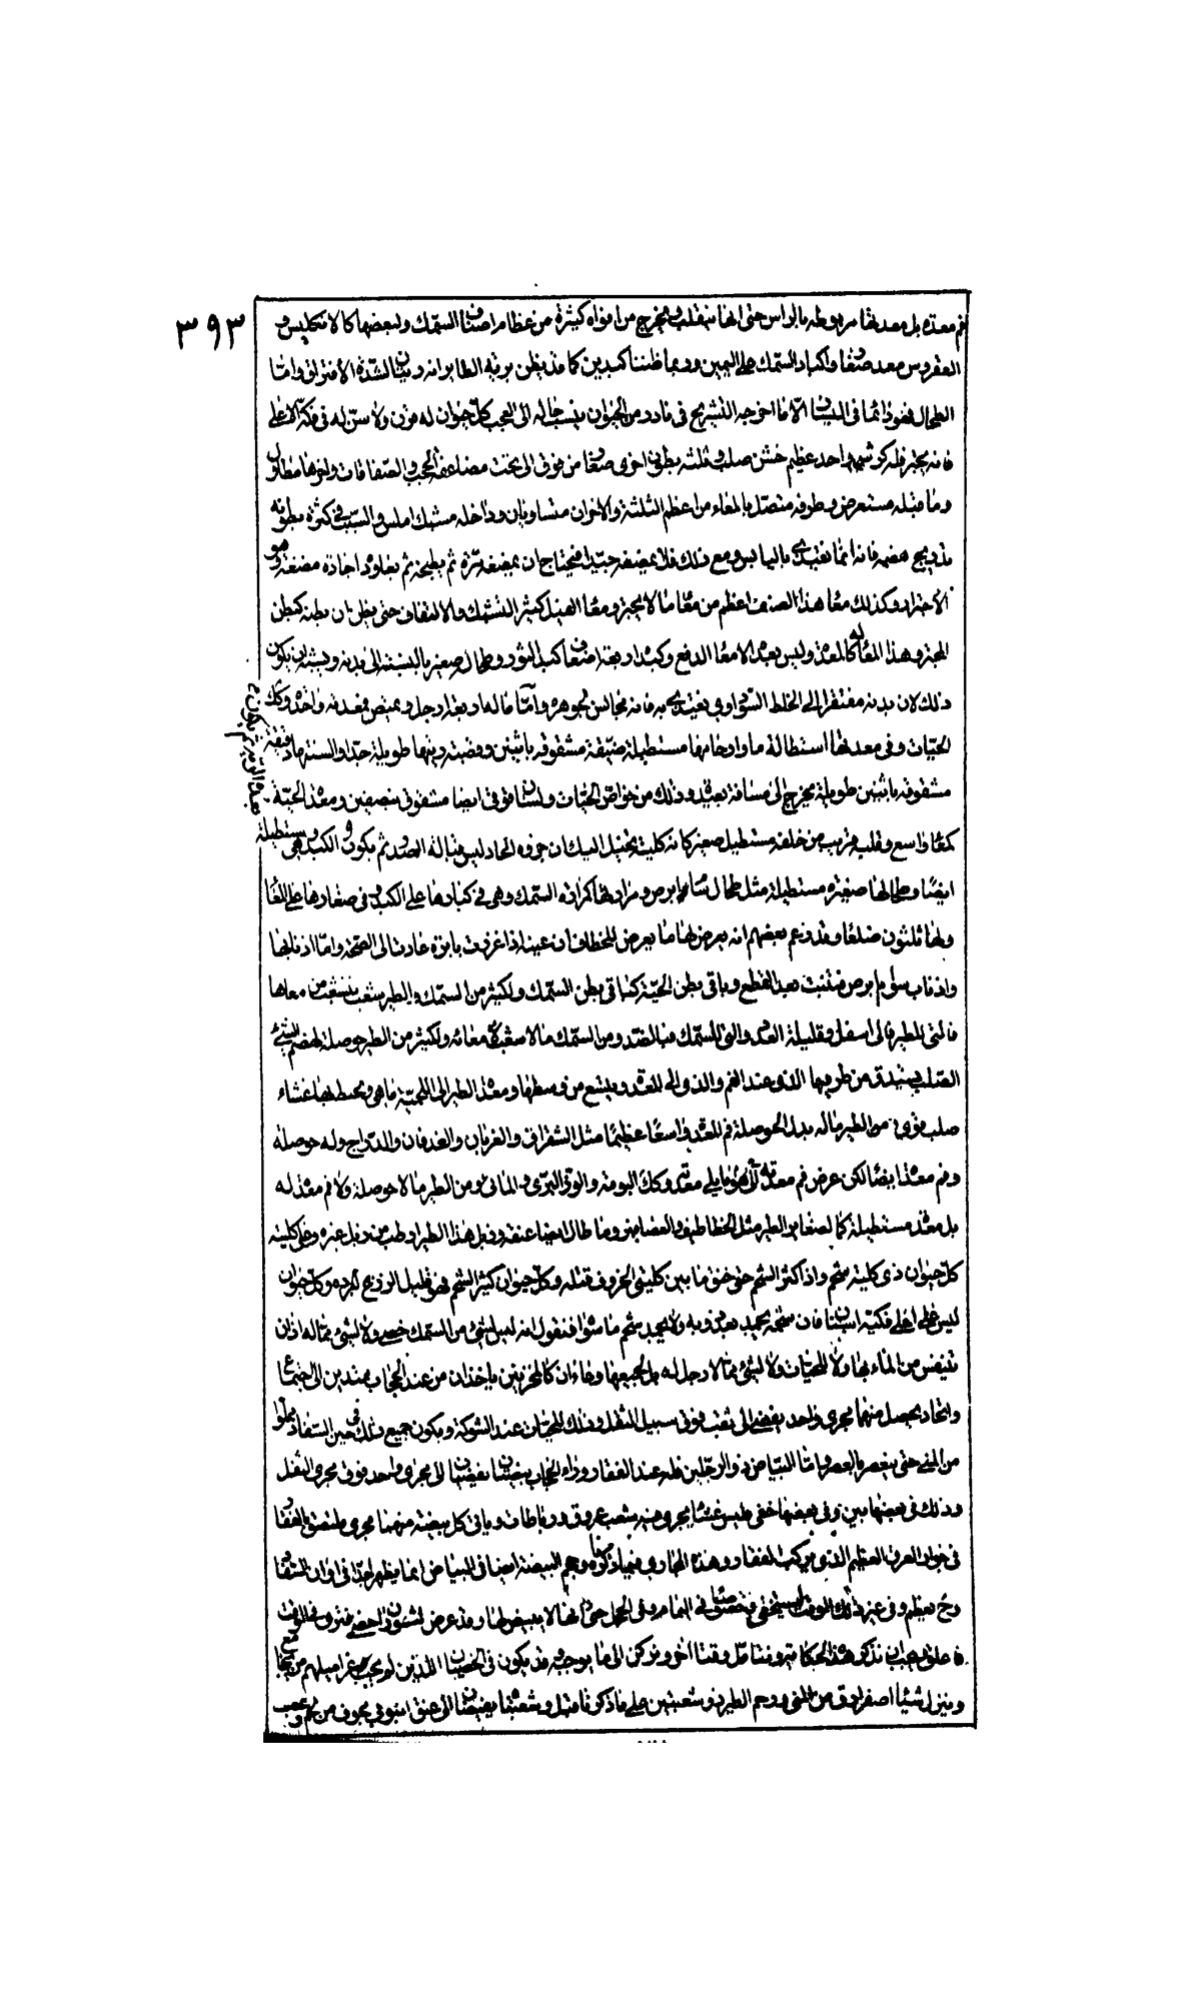 ٣٩٣
فم معدة بل معدتها مربوطة بالراس حتى انها تنقلب وتخرج من افواه كثيرة من عظام اصناف السمك ولبعضها كالانكليس و
العقروس معد صفا واكباد السمك على اليمين وربما ظننا كبدين كما قد يظن برية الطاير انه ريتان لشدة الافتراق واما
الطحال فهو دائما في اليسار الا ما اخرجه التشريح في نادر من الحيوان ينسب حاله الى العجب كل حيوان له قرن ولا سن له في فكه الاعلى
فانه يجتر فله كرش واحد عظيم خشن صلب وثلثة بطون اخرى صغار من فوق الى تحت مضاعفة الحجب والصفاقات واخرها مطاول
وما قبله مستعرض وطرفه متصل بالمعاء من اعظم الثلثة والاخران متساويان وداخله مشبك املس والسبب في كثرة بطونه
تدريج هضمه فانه انما يغتذى باليابس ومع ذلك فلا يمضغه جيدا فيحتاج ان يمضغه مرة ثم يطبخه ثم يعاود اعادة مضغه وهو
الاجترار وكذلك معا هذا الصنف اعظم من معا ما لا يجتر ومعا الفيل كثير التشبك والالتفاف حتى يظن ان بطنه كبطن
المجتر وهذا المعا له كالمعدة وليس بعده الا معا الدفع وكبده اربعة اضعاف كبد الثور وطحاله صغير بالنسبة الى بدنه ويشبه ان يكون
ذلك لان بدنه مفتقر الى الخلط السوداوى يغتذى به فانه مجانس لجوهره واما ما له اربعة ارجل ويبيض فمعدته واحدة وكك
الحيات وفى معدتها استطالة ما وارحامها مستطيلة ضيقة مشقوقة باثنين وقصبة ريتها طويلة جدا والسنتها دقيقة
مشقوقة باثنين طويلة يخرج الى مسافة بعيدة وذلك من خواص الحيات ولسان فوقى ايضا مشقوق بنصفين ومعدة الحية
كمعا واسع وقلبه قريب من حلقه مستطيل صغير كانه كلية يخيل اليك ان جوفه الحاد ليس قبالة الصدر ثم يكون الكبد وهى مستطيلة
ايضا وطحالها صغيرة مستطيلة مثل طحال سام ابرص ومرارتها كمرارة السمك وهى في كبارها على الكبد وفى صغارها على المعا
ولها ثلثون ضلعا وقد زعم بعضهم انه يعرض لها ما يعرض للخطاف ان عينه اذا غرزت بابرة عادت الى الصحة واما اذنابها
واذناب سوام ابرص فتنبت بعد القطع وباقى بطن الحية كباقى بطن السمك ولكثير من السمك والطير شعب تنشعب من معاها
فالتى للطير فالى اسفل وقليلة العدد والتى للسمك فبالضد ومن السمك ما لا شعبة لمعائه ولكثير من الطير حوصلة لهضم الشئ
الصلب يستدق من طرفيها الذى عند الفم والذى الى المعدة ويتسع من وسطها ومعدة الطير الى اللحمية ما هى ويحيط بها غشاء
صلب قوى ومن الطير ما له بدل الحوصلة فم المعدة واسعا عظيما مثل الشقراق والغربان والغدفان والدراج وله حوصلة
وفم معدة ايضا لكن عرض فم معدته انما هو مما يلى معدته وكك البومة والوز البرى والمائى ومن الطير ما لا حوصلة ولا فم معدة له
بل معدة مستطيلة كما لصغار الطير مثل الخطاطيف والعصافير وما طال ايضا عنقه وزبل هذا الطير ارطب من زبل غيره وعلى كلية
كل حيوان ذى كلية شحم واذا كثر الشحم حتى خفى ما بين كليتى الخروف قتله وكل حيوان كثير الشحم فهو قليل الزرع لبرده وكل حيوان
ليس على اعلى فكيه اسنان فان شحمه يجمد بعد ذوبه ولا يجمد شحم ما سواه فنقول انه ليس لشئ من السمك خصى ولا لشئ مما له اذان
تتنفس من الماء بها ولا للحيات ولا لشئ مما لا رجل له بل لجميعها وعاءان كالمجريين ياخذان من عند الحجاب ممتدين الى اجتماع
واتحاد يحصل منهما مجرى واحد يفضى الى ثقب فوق سبيل الثفل وذلك للحيتان عند الشوكة ويكون جميع ذلك في حين السفاد مملوا
من المنى حتى ينعصر بالعصر واما البياض ذو الرجلين فله عند الفقار وراء الحجاب بيضتان يفضيان الى مجرى واحد فوق مجرى الثفل
وذلك في بعضها بين وفى بعضها خفى يلبس غشاء يجرى فيه شعب عروق ورباطات وياتى كل بيضة منهما مجرى ملتصق بالفقار
في جوار العرق العظيم الذى يركب الفقار وهذه المجارى فيها ذكورة وحجم البيضة ايضا في البياض انما يظهر جدا في اوان السفاد
وح تعظم وفى غير ذلك الوقت تستخفى وخصوصا في اليمام وفى الحجل حتى انها لا بيض لها وقد عرض لشقوق خصى ثور في الوقت
فاعلق ويجب ان نذكر هذه الحكاية ونتامل وقتا اخر ونركن الى ما يوجبه قد يكون في الخصيان الذين لم يجب مع غراميلهم من يجامع
وينزل شيئا اصفر ارق من المنى ورحم الطير ذو شعبتين على ما ذكرنا قبل وشعبتاه يفضيان الى عنق انبوبى مجوف من لحم وعصب